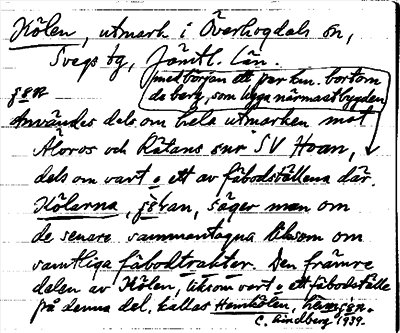 Kölen, utmark i Överhogdals sn,
Svegs tg, Jämtl. län.
med början ett par km. bortom
de berg, som ligga närmast bygden
Användes dels om hela utmarken mot
Älvros och Rätans snr SV Hoan,
dels om vart o ett av fäbodställena där.
Kölarna, säger man om
de senare sammantagna liksom om
samtliga fäbodtrakter. Den främre
delen av Kölen, liksom vart o ett fäbodställe
på denna del, kallas Hemkölen,
C. Lindberg 1939.